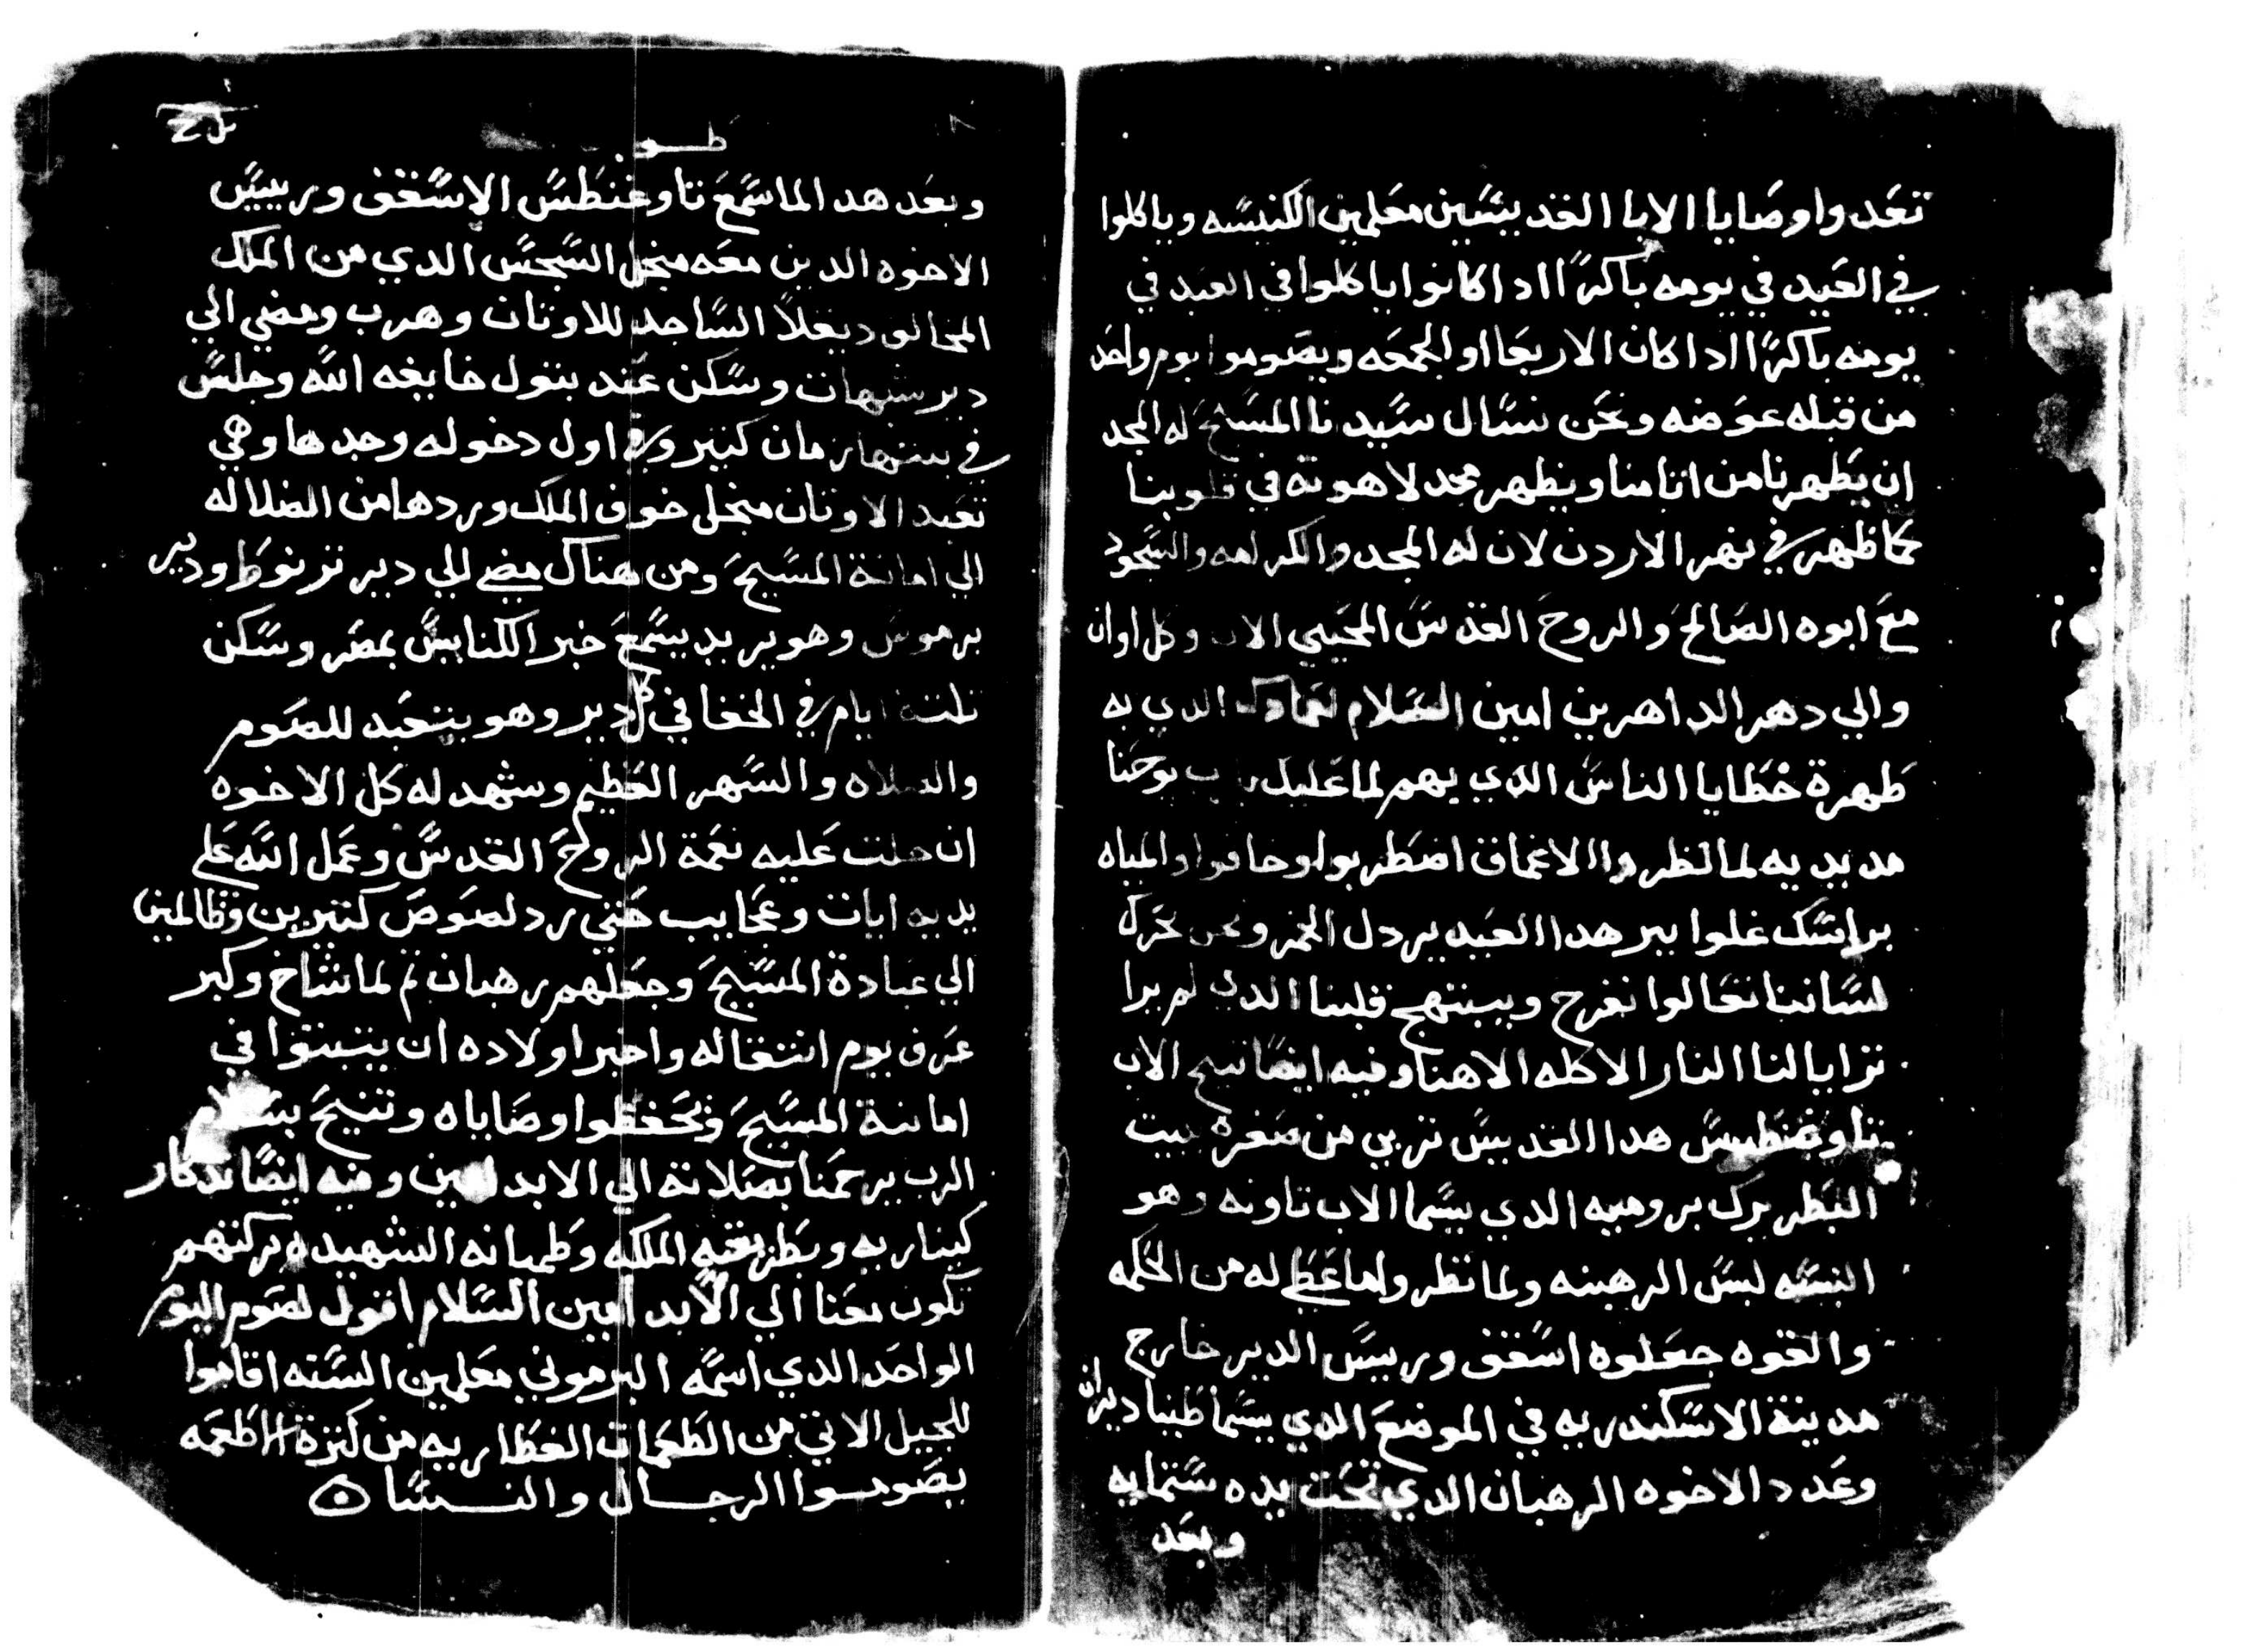 تعدوا وصايا الابا القديسين معلمين الكنيسه وياكلوا
في العيد في يومه باكرًا ادا كانوا ياكلوا في العيد في
يومه باكرًا ادا كان الاربعا او الجمعه ويصوموا يوم واحد
من قبله عوضه ونحن نسال سيدنا المسيح له المجد
ان يطهرنا من اتامنا ويظهر مجد لاهوته في قلوبنا
كما ظهر في نهر الاردن لان له المجد والكرامه والسجود
مع ابوه الصالح والروح القدس المحيي الان وكل اوان
والي دهر الداهرين امين السلام لعمادك الدي به
طهرة خطايا الناس الدي يهم لما عليك يوحنا
مد يديه لما نظروا الاعماق اضطربوا وخافوا والمياه
براسك غلوا بير هدا العيد بردل الخمر ونحن نحرك
لساننا تعالوا نفرح ويبتهج قلبنا الدي لم يرا
ترايا لنا النار الاكله الاهنا وفيه ايضًا تنيح الاب
تاوغنطس هدا القديس تربي من صغره بيت
البطريرك بروميه الدي يسما الاب تاونه وهو
البسه لبس الرهبنه ولما نظر ولما عطي له من الحكمه
والقوه جعلوه اسقف وريس الدير خارج
مدينة الاسكندريه في الموضع الدي يسما طنبا ديران
وعدد الاخوه الرهبان الدي تحت يده ستمايه
وبعد
وبعد هدا لما سمع تاوغنطس الاسقف وربييس
الاخوه الدين معه منجل السجس الدي من الملك
المخالف ديقلا الساجد للاوتان وهرب ومضي الي
دير سنهات وسكن عند بتول خايفه الله وجلس
في بيتها زمان كتير وفي اول دخوله وجدها وهي
تعبد الاوتان منجل خوف الملك وردها من الضلاله
الي امانة المسيح ومن هناك مضي الي دير ترنوط ودير
برموس وهو يريد يسمع خبر الكنايس بمصر وسكن
تلتة ايام في الخفا في كل دير وهو يتعبد للصوم
والصلاه والسهر العظيم وشهد له كل الاخوه
ان حلت عليه نعمة الروح القدس وعمل الله علي
يديه ايات وعجايب حتي رد لصوص كتيرين وظالمين
الي عبادة المسيح وجعلهم رهبان تم لما شاخ وكبر
عرف يوم انتقاله واخبر اولاده ان يتبتوا في
امانة المسيح وتحفظوا وصاياه وتنيح بسلام
الرب يرحمنا بصلاته الي الابد امين وفيه ايضًا تدكار
كيناريه وبطريقيه الملكه وطميانه الشهيده بركتهم
تكون معنا الي الابد امين السلام اقول لصوم اليوم
الواحد الدي اسمه البرموني معلمين السته اقاموا
للجيل الاتي من الطعمات الفطاريه من كترة الاطعمه
يصوموا الرجال والنسا